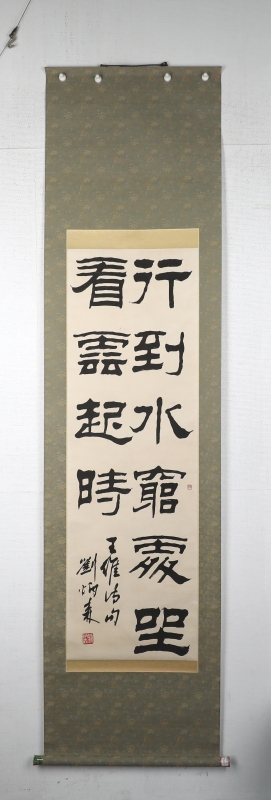 行到水窮處坐
看雲起時
王維詩句
劉炳森